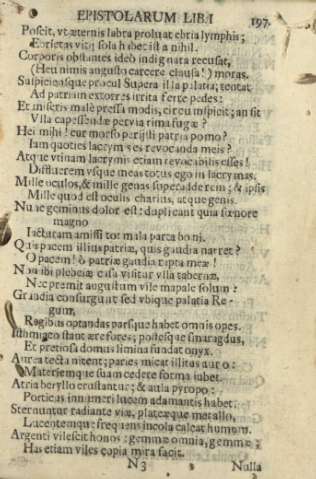 EPISTOLARUM LIB. I 197.
Poscit, vt æternis labra proluat ebria lymphis;
Ebrietas vitij sola habet ista nihil.
Corporis obstantes ideò indignata recusat,
(Heu nimis angusto carcere clausa!) moras.
Suspiciensque procul Supera illa palatia; tentat
Ad patriam extorres irrita ferre pedes:
Et miseris malè pressa modis, circumspicit; an sit
Vlla capessendæ pervia rima fugæ?
Hei mihi! cur morso perijsti patria pomo?
Iam quoties lacrymæs es revocanda meis?
Atque vtinam lacrymis etiam revocabilis esses!
Diffluerem vsque meas totus ego in lacrymas.
Mille oculos, & mille genas superadderem; & ipsis
Mille quod est oculis charius, atque genis.
Nunc geminus dolor est: duplicant quia fœnore
magno
Iacturam amissi tot mala parta boni.
Quis pacem illius patriæ, quis gaudia narret?
O pacem! ò patriæ gaudia rapta meæ!
Non ibi plebeiæ casa visitur vlla tabernæ,
Nec premit augustum vile mapale solum:
Grandia consurgunt sed vbique palatia Re-
gum,
Regibus optandas parsque habet omnis opes.
Isthmiaco stant ære fores; postesque smaragdus,
Et pretiosa domus limina fundat onyx.
Aurea tecta nitent; paries micat illitus auro:
Materiemque suam cedere forma iubet.
Atria beryllo crustantur; & aula pyropo:
Porticus innumeri lucem adamantis habet.
Sternuntur radiante viæ, plateæque metallo,
Lucentemque frequens incola calcat humum.
Argenti vilescit honos: gemmæ omnia, gemmæ;
Has etiam viles copia mira facit.
N 3 Nulla